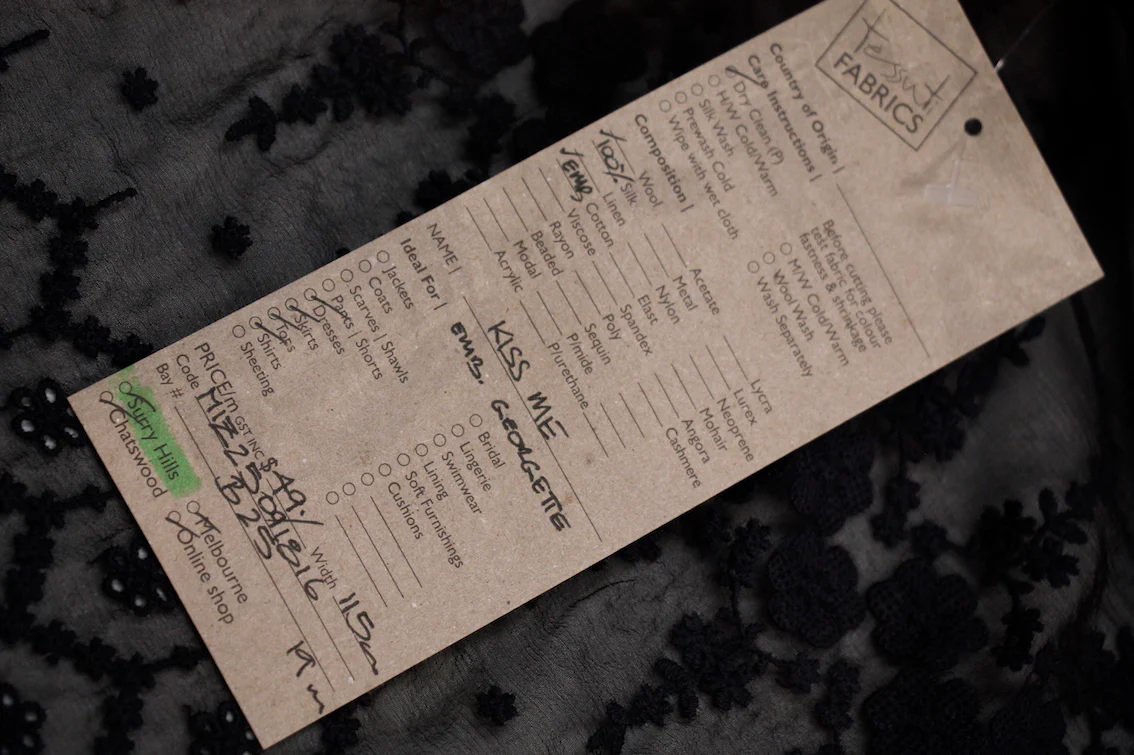 Tessuti
FABRICS
Country of Origin |
Care Instructions |
Dry Clean (P)
H/W Cold/Warm
Silk Wash
Prewash Cold
Wipe with wet cloth
Before cutting please
test fabric for colour
fastness & shrinkage
M/W Cold/Warm
Wool Wash
Wash Separately
Composition |
Wool
100% Silk
Linen
Cotton
Viscose
Rayon
Beaded
Modal
Acrylic
Acetate
Metal
Nylon
Elast
Spandex
Poly
Sequin
P/mide
P/urethane
Lycra
Lurex
Neoprene
Mohair
Angora
Cashmere
EMB
NAME | KISS ME
EMB. GEORGETTE
Ideal For |
Jackets
Coats
Scarves | Shawls
Pants | Shorts
Dresses
Skirts
Tops
Shirts
Sheeting
Bridal
Lingerie
Swimwear
Lining
Soft Furnishings
Cushions
PRICE/m GST INC $ 49./ Width 115cm
Code
Bay # B25 19 m
Surry Hills
Chatswood
Melbourne
Online shop